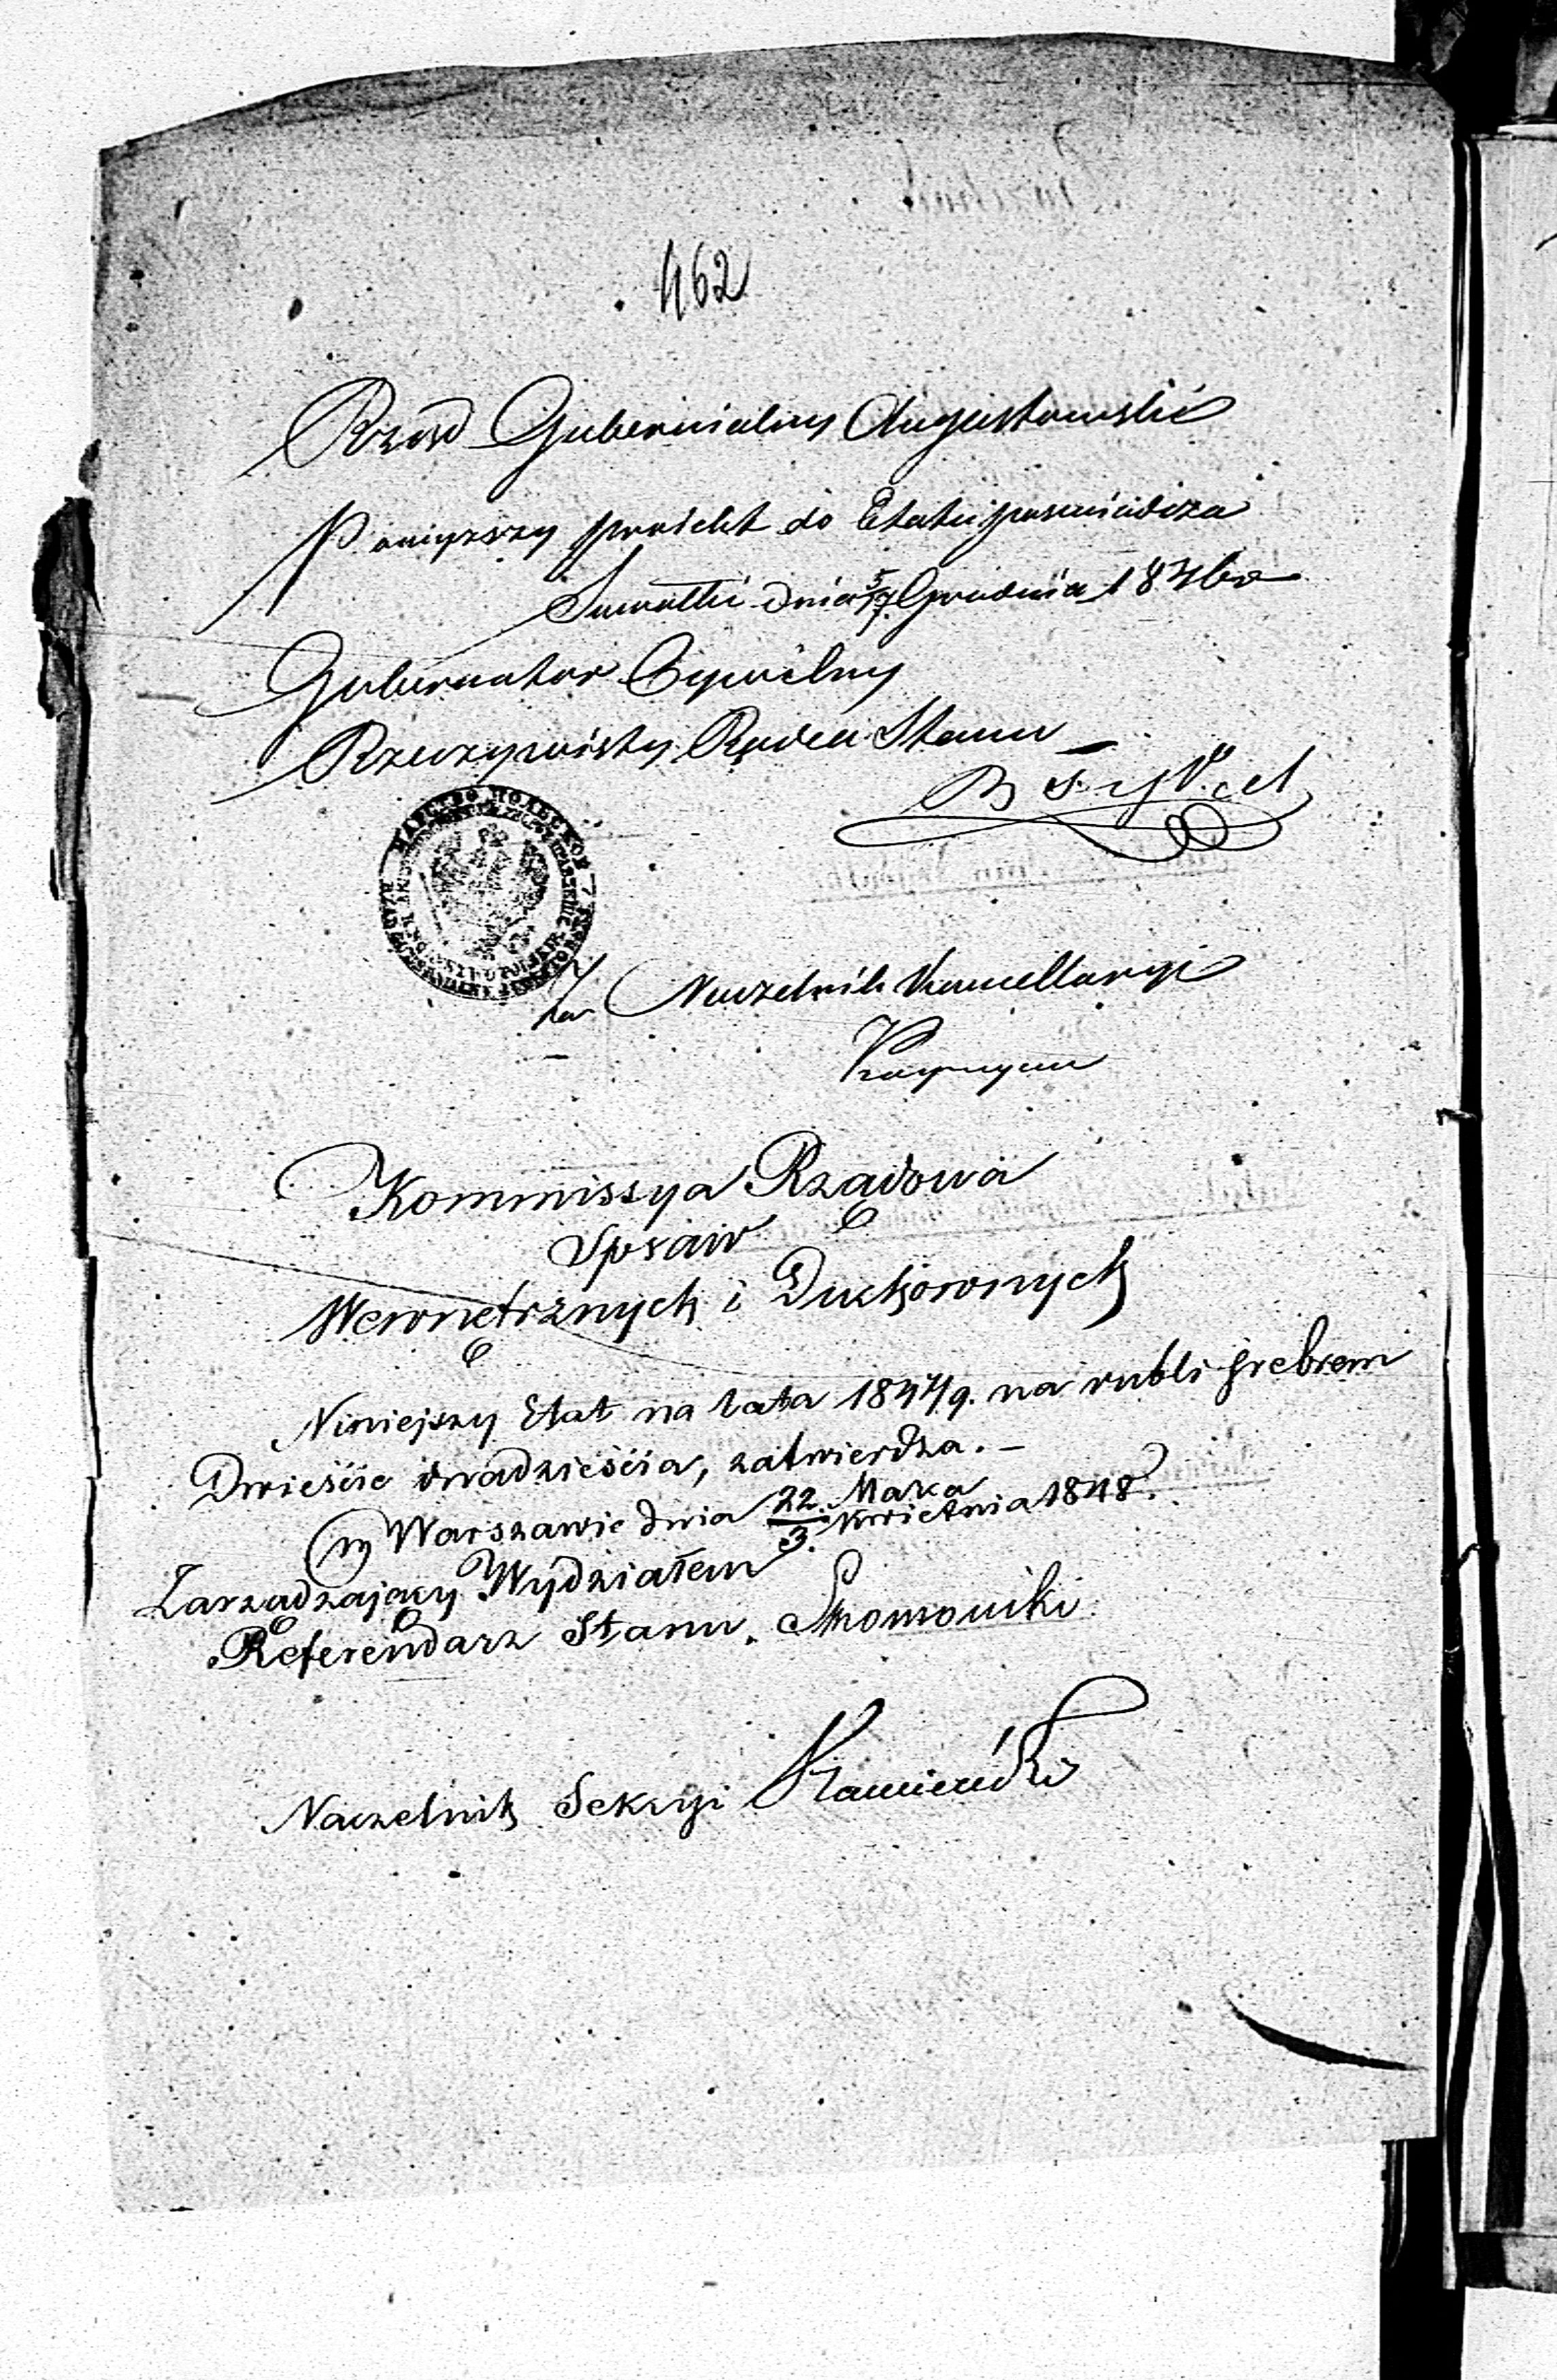 462
Rząd Gubernialny Augustowski
Poniższy proiekt do Etatu poswiadcza
Suwałki dnia 5/17 Grudnia 1846 r
Gubernator Cywilny
Rzeczywisty Radca Stanu
Za Naczelnik Kancellaryi
Kommissya Rządowa
Spraw
Wewnętrznych i Duchownych
Niniejszy Etat na lata 1847/9. na rubli srebrem
Dwieście dwadzieścia, zatwierdza. –
w Warszawie dnia 22. Marca
3. Kwietnia 1848.
Zarządzający Wydziałem
Referendarz Stanu.
Naczelnik Sekcyi Kamieński